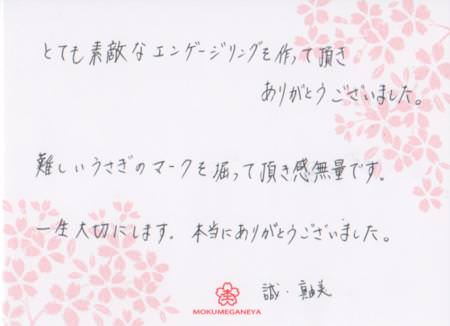 とても素敵なエンゲージリングを作って頂き
ありがとうございました。
難しいうさぎのマークを掘って頂き感無量です。
一生大切にします。本当にありがとうございました。
誠・美
MOKUMEGANEYA